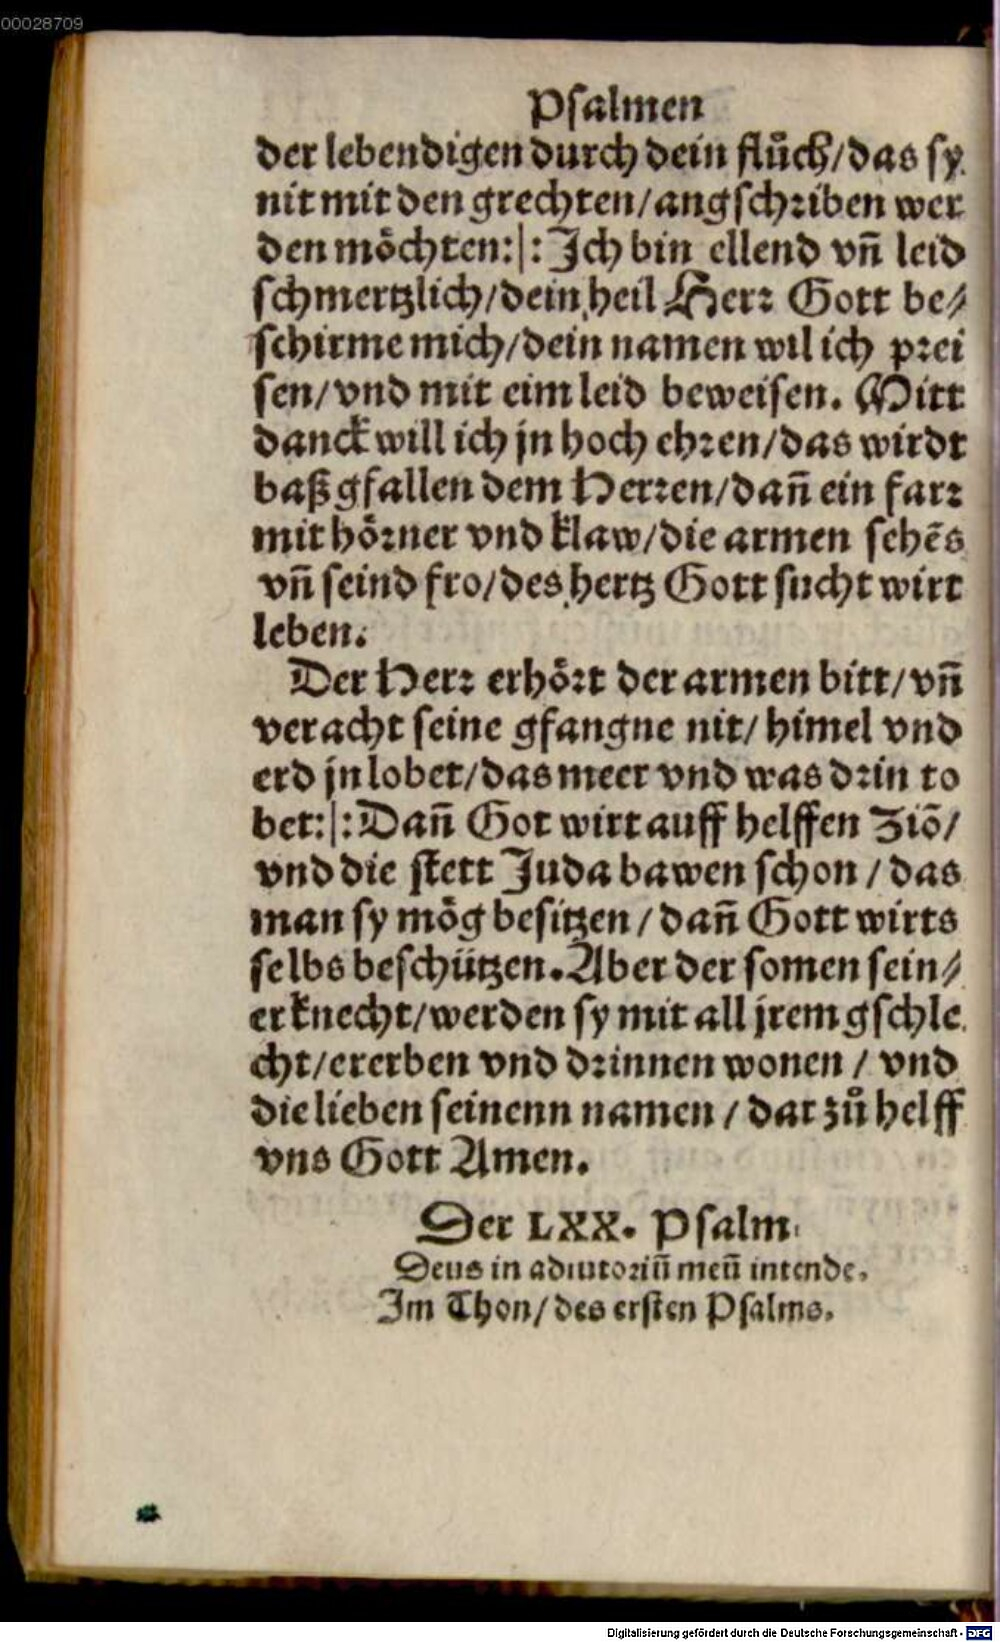 00028709
Psalmen
der lebendigen durch dein flůch/das sy
nit mit den grechten/angschriben wer
den möchten:|:Jch bin ellend vñ leid
schmertzlich/dein heil Herr Gott be⸗
schirme mich/dein namen wil ich prei
sen/vnd mit eim leid beweisen. Mitt
danck will ich jn hoch ehren/das wirdt
baß gfallen dem Herren/dañ ein farr
mit hörner vnd klaw/die armen sehēs
vñ seind fro/des hertz Gott sucht wirt
leben.
Der Herr erhört der armen bitt/vñ
veracht seine gfangne nit/himel vnd
erd jn lobet/das meer vnd was drin to
bet:|:Dañ Got wirt auff helffen Ziō/
vnd die stett Juda bawen schon/das
man sy mög besitzen/dañ Gott wirts
selbs beschützen.Aber der somen sein⸗
er knecht/werden sy mit all jrem gschle
cht/ererben vnd drinnen wonen/vnd
die lieben seinenn namen/dar zů helff
vns Gott Amen.
Der LXX. Psalm.
Deus in adiutoriũ meũ intende.
Im Thon/des ersten Psalms.
Digitalisierung gefördert durch die Deutsche Forschungsgemeinschaft - DFG